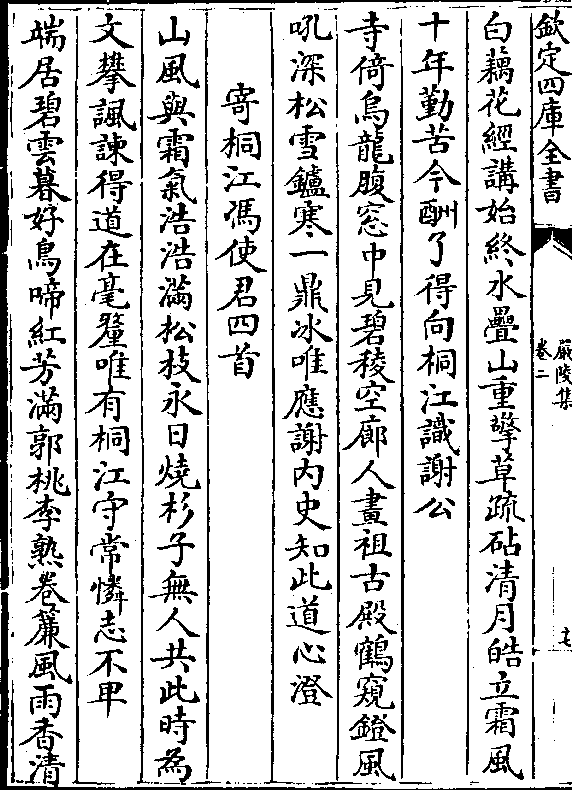 欽定四庫全書
嚴陵集
卷二
七
白藕花經講始終水疊山重擎草疏砧清月皓立霜風
十年勤苦今酬了得向桐江識謝公
寺倚烏龍腹窓中見碧稜空廊人畫祖古殿鶴窺鐙風
吼深松雪鑪寒一鼎冰唯應謝内史知此道心澄
寄桐江馮使君四首
山風與霜氣浩浩滿松枝永日燒杉子無人共此時為
文攀諷諫得道在毫釐唯有桐江守常憐志不卑
端居碧雲暮好鳥啼紅芳滿郭桃李熟卷簾風雨香清